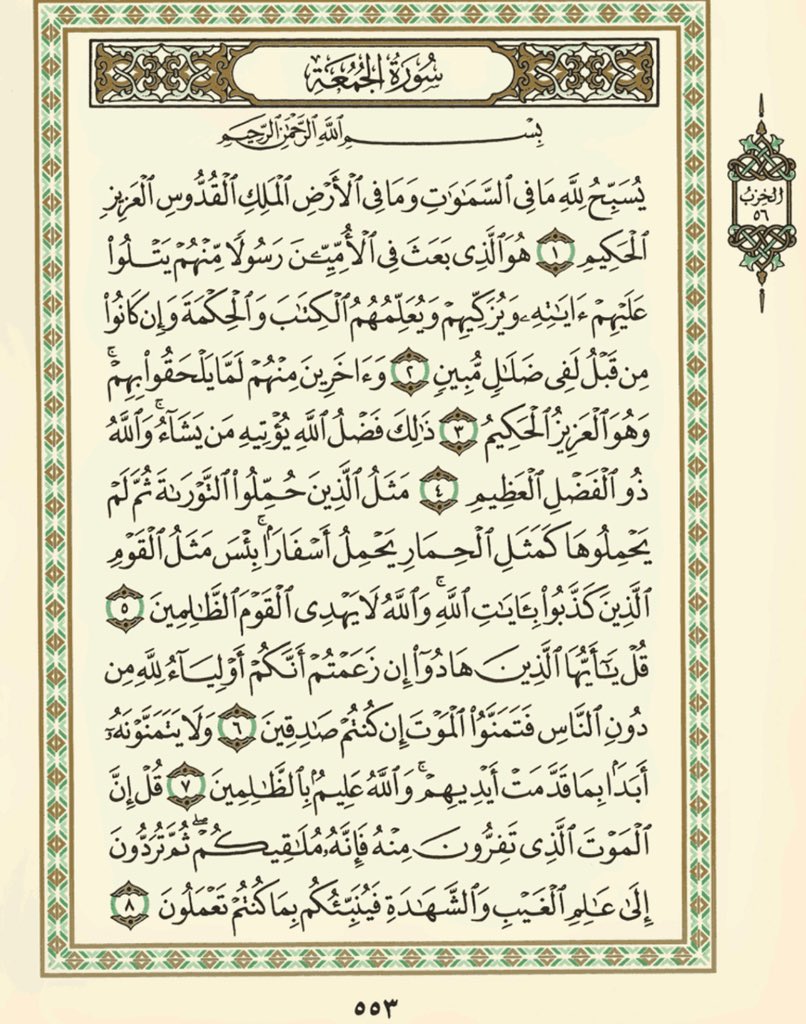 سُورَةُ الجُمُعَةِ
بِسْمِ ٱللَّهِ ٱلرَّحْمَٰنِ ٱلرَّحِيمِ
الحِزْبُ
٥٦
يُسَبِّحُ لِلَّهِ مَا فِى ٱلسَّمَٰوَٰتِ وَمَا فِى ٱلْأَرْضِ ٱلْمَلِكِ ٱلْقُدُّوسِ ٱلْعَزِيزِ
ٱلْحَكِيمِ ١ هُوَ ٱلَّذِى بَعَثَ فِى ٱلْأُمِّيِّـۧنَ رَسُولًا مِّنْهُمْ يَتْلُوا۟
عَلَيْهِمْ ءَايَٰتِهِۦ وَيُزَكِّيهِمْ وَيُعَلِّمُهُمُ ٱلْكِتَٰبَ وَٱلْحِكْمَةَ وَإِن كَانُوا۟
مِن قَبْلُ لَفِى ضَلَٰلٍ مُّبِينٍ ٢ وَءَاخَرِينَ مِنْهُمْ لَمَّا يَلْحَقُوا۟ بِهِمْ ۚ
وَهُوَ ٱلْعَزِيزُ ٱلْحَكِيمُ ٣ ذَٰلِكَ فَضْلُ ٱللَّهِ يُؤْتِيهِ مَن يَشَآءُ ۚ وَٱللَّهُ
ذُو ٱلْفَضْلِ ٱلْعَظِيمِ ٤ مَثَلُ ٱلَّذِينَ حُمِّلُوا۟ ٱلتَّوْرَىٰةَ ثُمَّ لَمْ
يَحْمِلُوهَا كَمَثَلِ ٱلْحِمَارِ يَحْمِلُ أَسْفَارًۢا ۚ بِئْسَ مَثَلُ ٱلْقَوْمِ
ٱلَّذِينَ كَذَّبُوا۟ بِـَٔايَٰتِ ٱللَّهِ ۚ وَٱللَّهُ لَا يَهْدِى ٱلْقَوْمَ ٱلظَّٰلِمِينَ ٥
قُلْ يَٰٓأَيُّهَا ٱلَّذِينَ هَادُوٓا۟ إِن زَعَمْتُمْ أَنَّكُمْ أَوْلِيَآءُ لِلَّهِ مِن
دُونِ ٱلنَّاسِ فَتَمَنَّوُا۟ ٱلْمَوْتَ إِن كُنتُمْ صَٰدِقِينَ ٦ وَلَا يَتَمَنَّوْنَهُۥٓ
أَبَدًۢا بِمَا قَدَّمَتْ أَيْدِيهِمْ ۚ وَٱللَّهُ عَلِيمٌۢ بِٱلظَّٰلِمِينَ ٧ قُلْ إِنَّ
ٱلْمَوْتَ ٱلَّذِى تَفِرُّونَ مِنْهُ فَإِنَّهُۥ مُلَٰقِيكُمْ ۖ ثُمَّ تُرَدُّونَ
إِلَىٰ عَٰلِمِ ٱلْغَيْبِ وَٱلشَّهَٰدَةِ فَيُنَبِّئُكُم بِمَا كُنتُمْ تَعْمَلُونَ ٨
٥٥٣